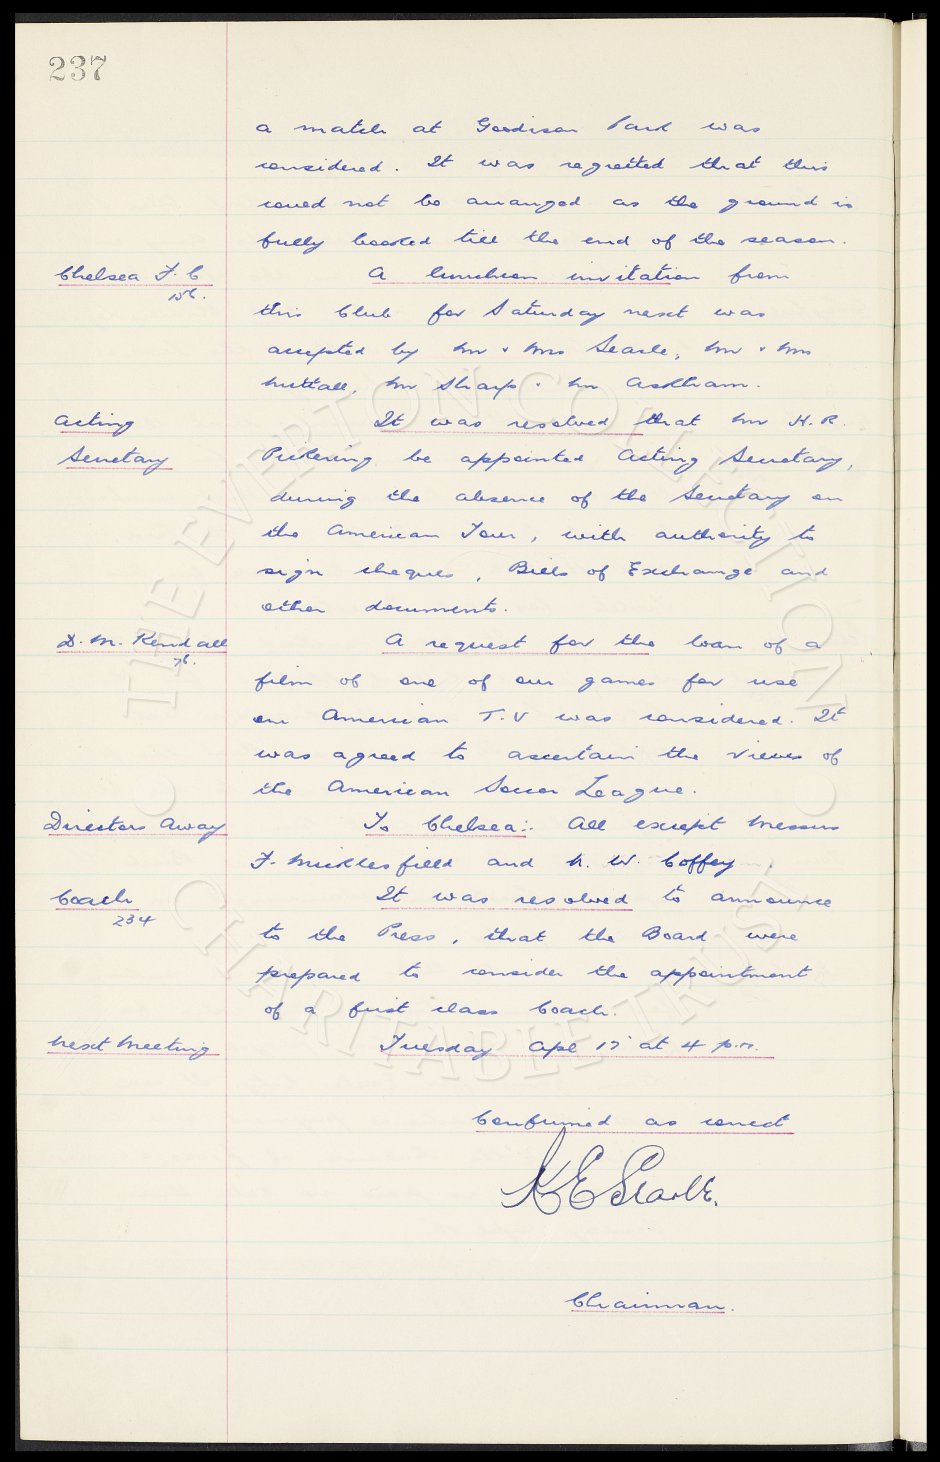 237
a match at Goodison Park was
considered. It was regretted that this
could not be arranged as the ground is
fully booked till the end of the season.
Chelsea F.C
156.
A luncheon invitation from
this Club for Saturday next was
accepted by Mr & Mrs Searle, Mr & Mrs
Nuttall, Mr Sharp & Mr Askham.
Acting
Secretary
It was resolved that Mr H.R.
Pickering be appointed Acting Secretary,
during the absence of the Secretary on
the American Tour, with authority to
sign cheques, Bills of Exchange and
other documents.
D.M. Kendall
76.
A request for the loan of a
film of one of our games for use
on American T.V was considered. It
was agreed to ascertain the views of
the American Soccer League.
Directors Away
To Chelsea:- All except Messrs
F. Micklesfield and N.W. Coffey.
Coach
234
It was resolved to announce
to the Press, that the Board were
prepared to consider the appointment
of a first class Coach.
Next Meeting
Tuesday Apl at 4 p.m.
Confirmed as correct
Searle.
Chairman.
THE EVERTON COLLECTION
CHARITABLE TRUST